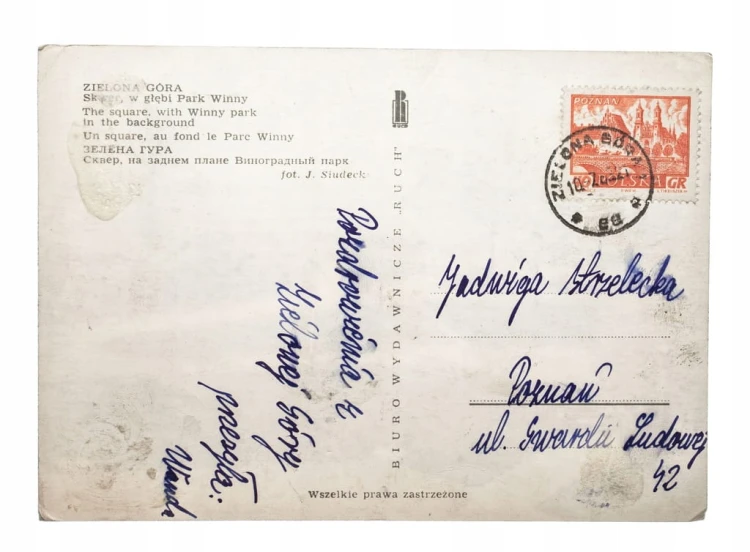 ZIELONA GÓRA
Skwer, w głębi Park Winny
The square, with Winny park
in the background
Un square, au fond le Parc Winny
ЗЕЛЕНА ГУРА
Сквер, на заднем плане Виноградный парк
fot. J. Siudecki
BIURO WYDAWNICZE „RUCH"
Pozdrowienia z
Zielonej Góry
przesyła:
Wanda
POZNAŃ
POLSKA GR
ZIELONA GÓRA 1
Jadwiga Strzelecka
Poznań
ul. Gwardii Ludowej
42
Wszelkie prawa zastrzeżone